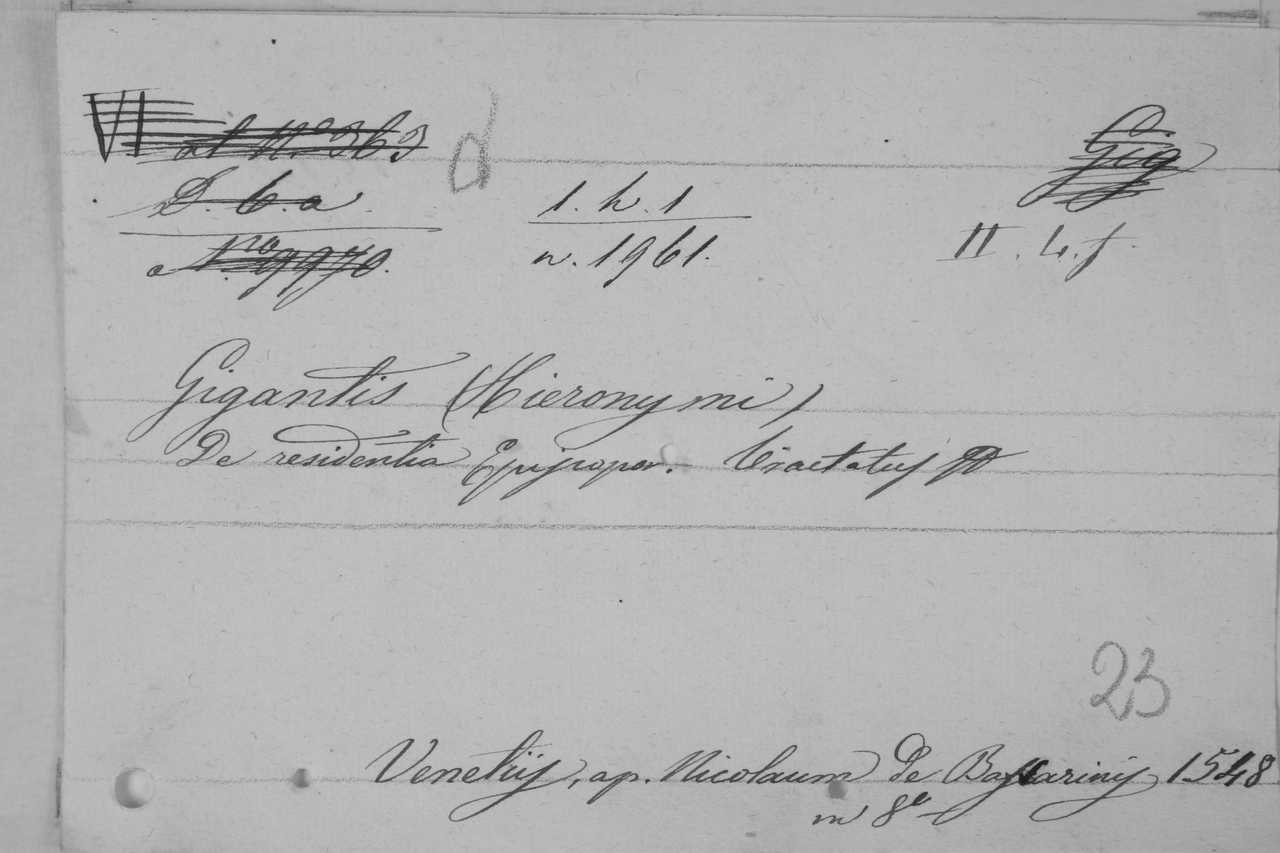 VI al N.o 363 d Gig
D. b. a 1. h. 1
a N.ro 9970. n. 1961. II. 4. f.
Gigantis (Hieronymi)
De residentia Episcopor. Tractatus
23
Venetiis, ap. Nicolaum de Bascarinis 1548
in 8o